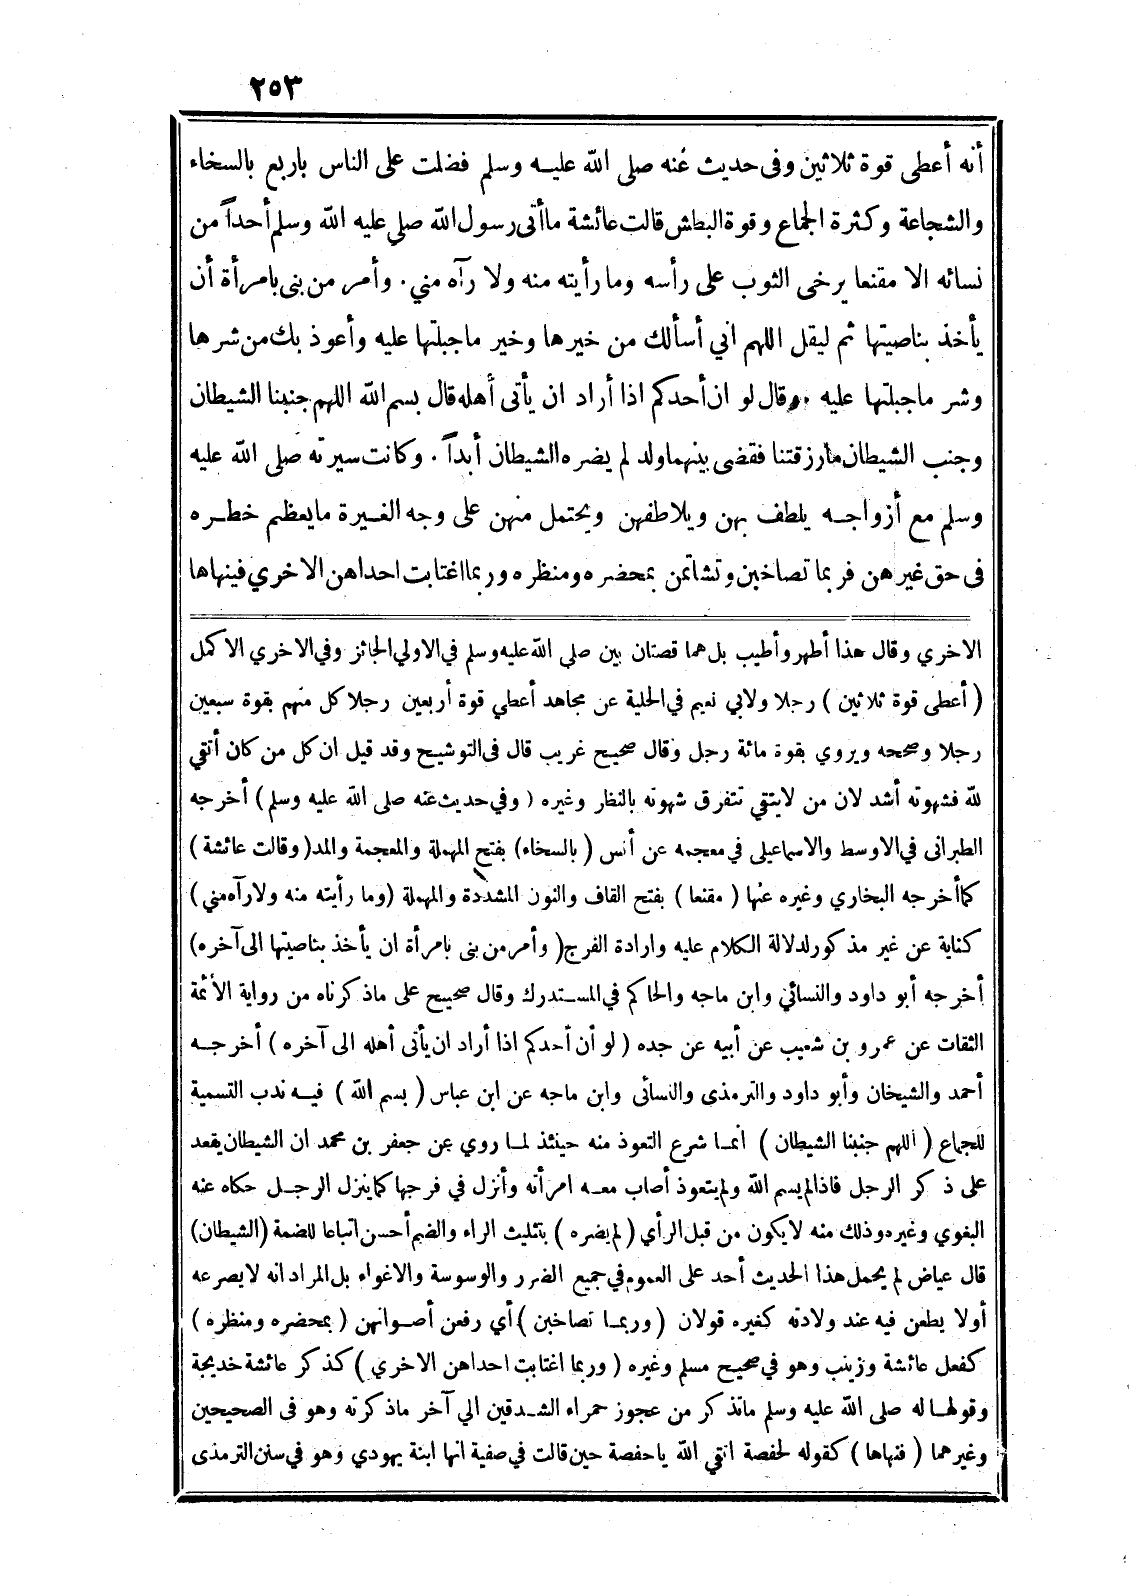 ٢٥٣
أنه أعطى قوة ثلاثين وفى حديث عنه صلى الله عليه وسلم فضلت على الناس باربع بالسخاء
والشجاعة وكثرة الجماع وقوة البطش قالت عائشة ما أتى رسول الله صلى عليه الله وسلم أحداً من
نسائه الا مقنعا يرخى الثوب على رأسه وما رأيته منه ولا رآه مني . وأمر من بنى بامرأة أن
يأخذ بناصيتها ثم ليقل اللهم اني أسألك من خيرها وخير ماجبلتها عليه وأعوذ بك من شرها
وشر ماجبلتها عليه . وقال لو ان أحدكم اذا أراد ان يأتى أهله قال بسم الله اللهم جنبنا الشيطان
وجنب الشيطان مارزقتنا فقضى بينهما ولد لم يضره الشيطان أبداً . وكانت سيرته صلى الله عليه
وسلم مع أزواجه يلطف بهن ويلاطفهن ويحتمل منهن على وجه الغيرة مايعظم خطره
فى حق غيرهن فربما تصاخبن وتشاتمن بمحضره ومنظره وربما اغتابت احداهن الاخري فينهاها
الاخري وقال هذا أطهر وأطيب بل هما قصتان بين صلى الله عليه وسلم في الاولي الجائز وفي الاخري الاكمل
( أعطى قوة ثلاثين ) رجلا ولابي نعيم في الحلية عن مجاهد أعطي قوة أربعين رجلا كل منهم بقوة سبعين
رجلا وصححه ويروي بقوة مائة رجل وقال صحيح غريب قال فى التوشيح وقد قيل ان كل من كان أتقي
لله فشهوته أشد لان من لايتقي تتفرق شهوته بالنظر وغيره ( وفي حديث عنه صلى الله عليه وسلم ) أخرجه
الطبرانى في الاوسط والاسماعيلى في معجمه عن أنس ( بالسخاء ) بفتح المهملة والمعجمة والمد ( وقالت عائشة )
كما أخرجه البخاري وغيره عنها ( مقنعا ) بفتح القاف والنون المشددة والمهملة ( وما رأيته منه ولا رآه مني )
كناية عن غير مذكور لدلالة الكلام عليه وارادة الفرج ( وأمر من بنى بامرأة ان يأخذ بناصيتها الى آخره )
أخرجه أبو داود والنسائي وابن ماجه والحاكم في المستدرك وقال صحيح على ماذكرناه من رواية الأئمة
الثقات عن عمرو بن شعيب عن أبيه عن جده ( لو أن أحدكم اذا أراد ان يأتى أهله الى آخره ) أخرجه
أحمد والشيخان وأبو داود والترمذى والنسائى وابن ماجه عن ابن عباس ( بسم الله ) فيه ندب التسمية
للجماع ( اللهم جنبنا الشيطان ) انما شرع التعوذ منه حينئذ لما روي عن جعفر بن محمد ان الشيطان يقعد
على ذكر الرجل فاذا لم يسم الله ولم يتعوذ أصاب معه امرأته وأنزل في فرجها كما ينزل الرجل حكاه عنه
البغوي وغيره وذلك منه لا يكون من قبل الرأي ( لم يضره ) بتثليث الراء والضم أحسن اتباعا للضمة ( الشيطان )
قال عياض لم يحمل هذا الحديث أحد على العموم في جميع الضرر والوسوسة والاغواء بل المراد انه لا يصرعه
أولا يطعن فيه عند ولادته كغيره قولان ( وربما تصاخبن ) أي رفعن أصواتهن ( بمحضره ومنظره )
كفعل عائشة وزينب وهو في صحيح مسلم وغيره ( وربما اغتابت احداهن الاخري ) كذكر عائشة خديجة
وقولها له صلى الله عليه وسلم ماتذكر من عجوز حمراء الشدقين الي آخر ماذكرته وهو فى الصحيحين
وغيرهما ( فنهاها ) كقوله لحفصة اتقي الله ياحفصة حين قالت في صفية انها ابنة يهودي وهو في سنن الترمذى